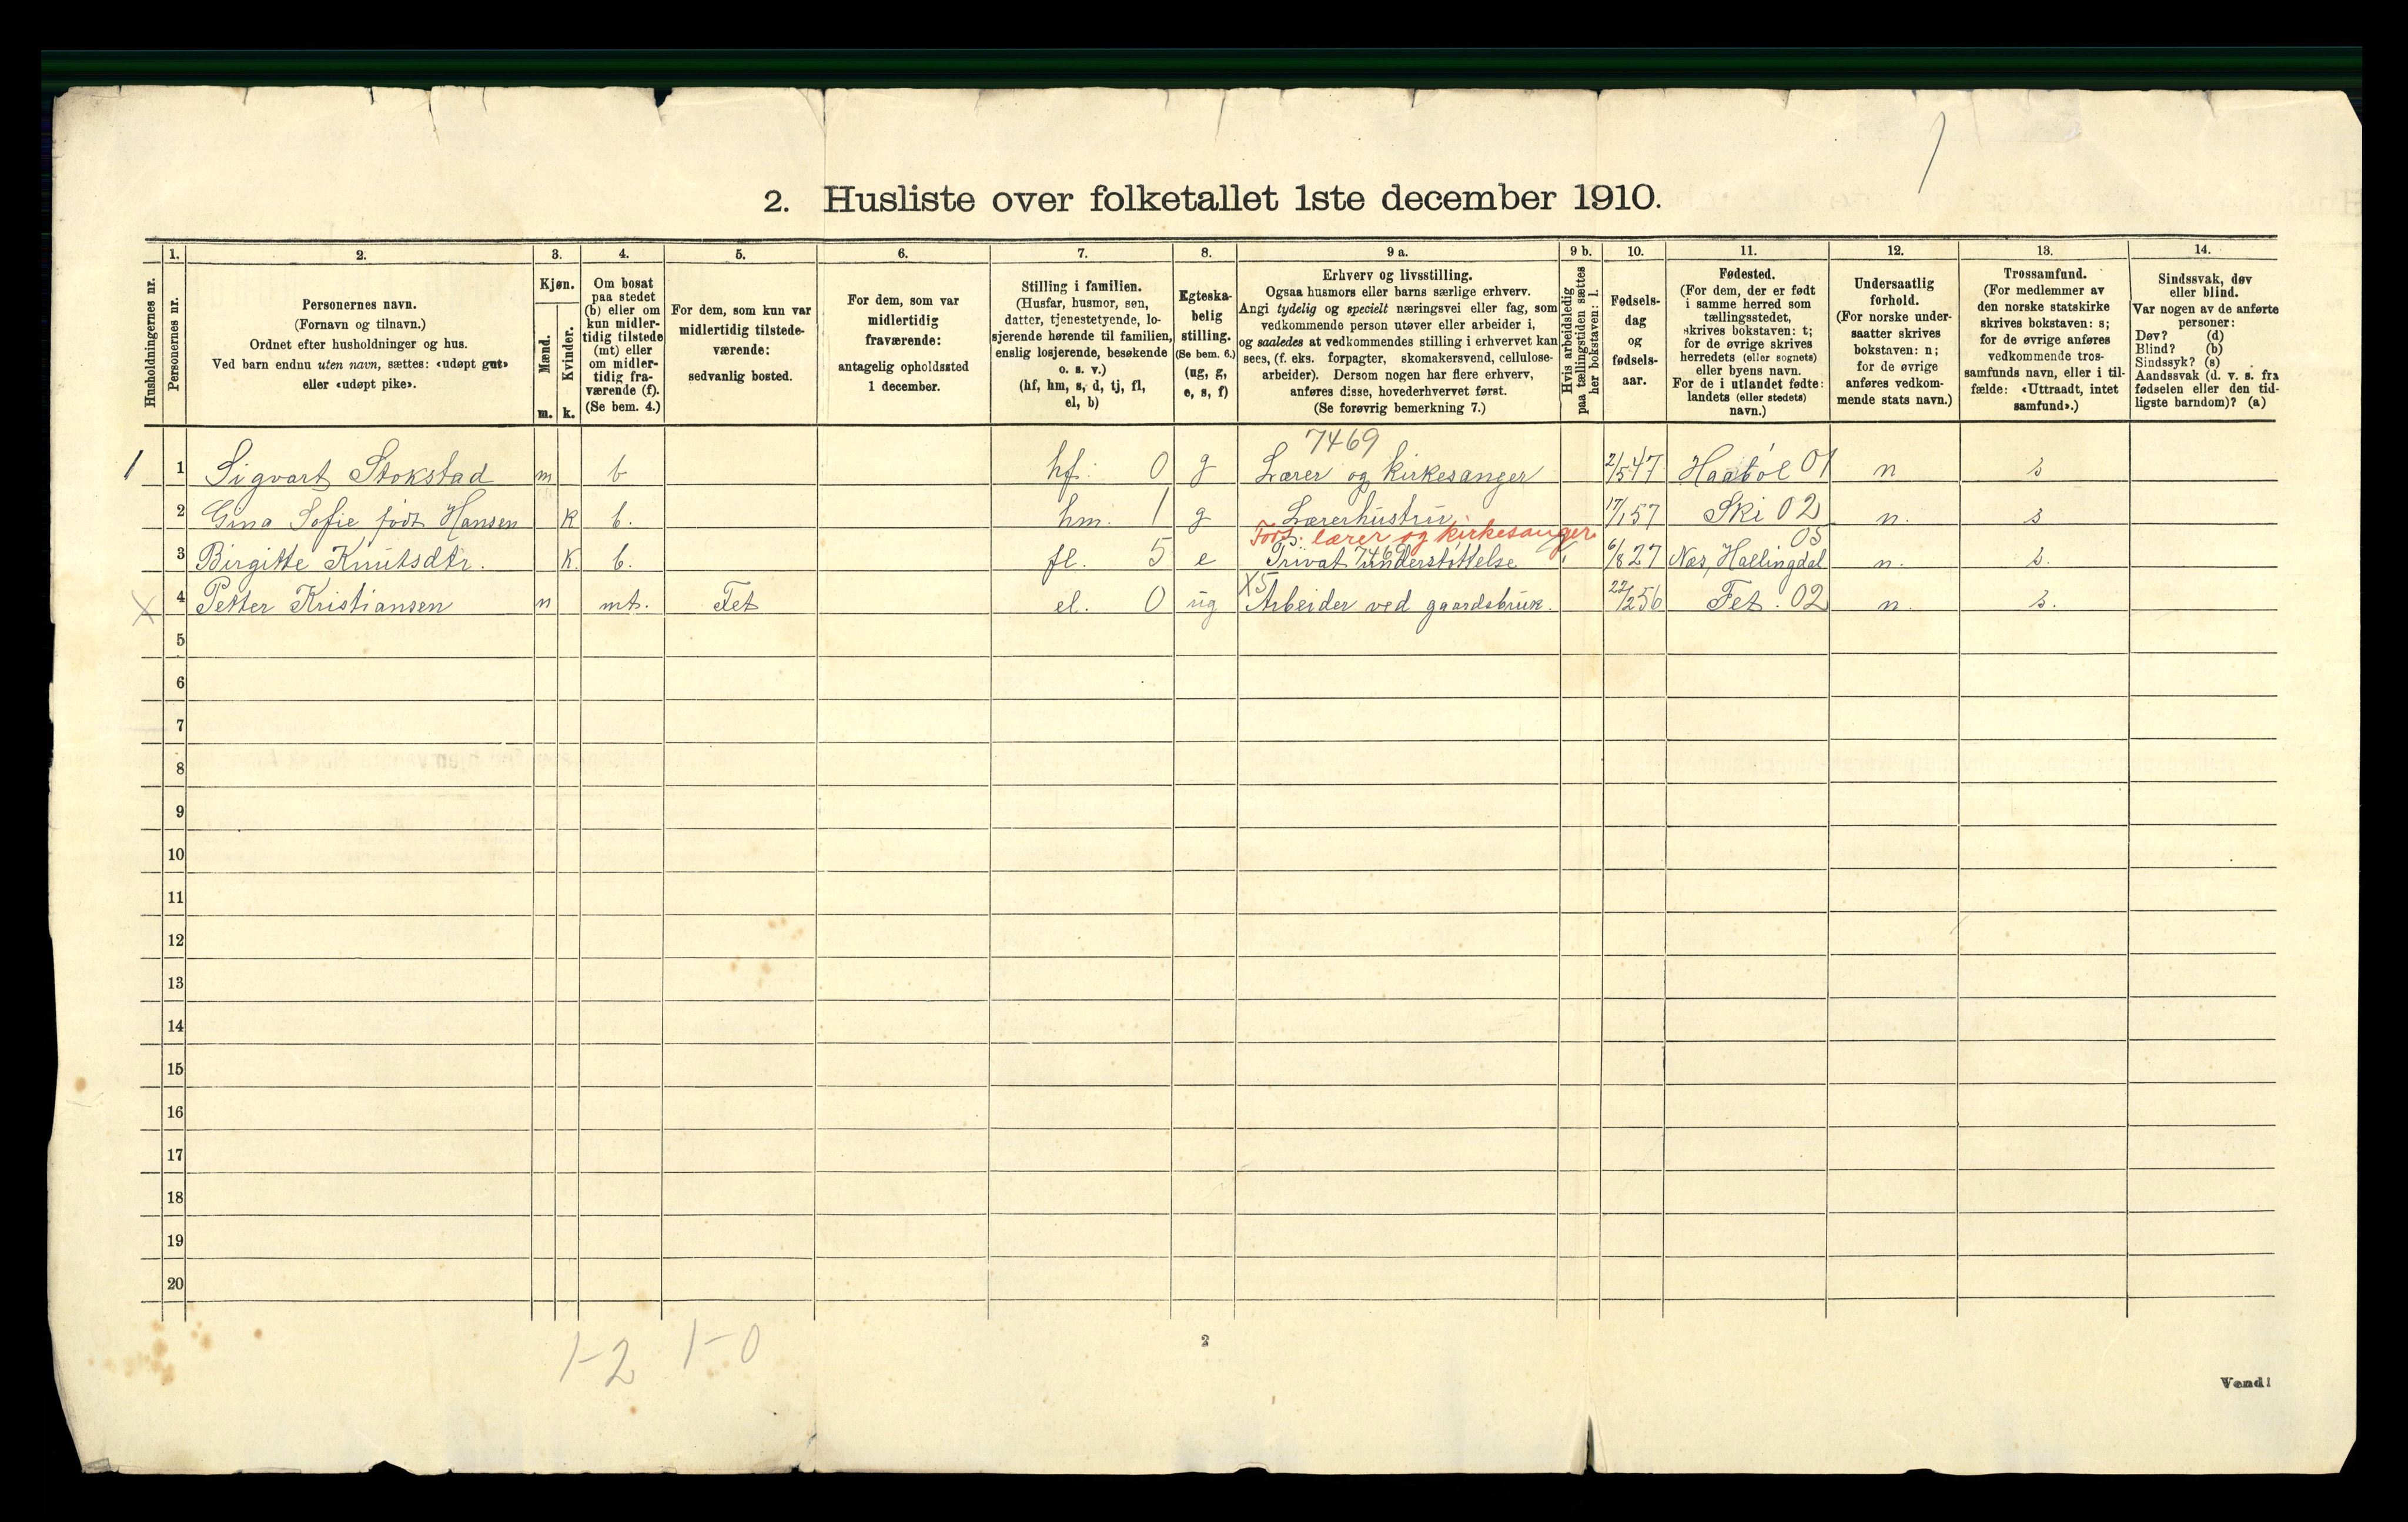 2. Husliste over folketallet 1ste december 1910.
Husholdningernes nr.
1.
Personernes nr.
2.
Personernes navn.
(Fornavn og tilnavn.)
Ordnet efter husholdninger og hus.
Ved barn endnu uten navn, sættes: «udøpt gut»
eller «udøpt pike».
3.
Kjøn.
Mænd.
m.
Kvinder.
k.
4.
Om bosat
paa stedet
(b) eller om
kun midler-
tidig tilstede
(mt) eller
om midler-
tidig fra-
værende (f).
(Se bem. 4.)
5.
For dem, som kun var
midlertidig tilstede-
værende:
sedvanlig bosted.
6.
For dem, som var
midlertidig
fraværende:
antagelig opholdssted
1 december.
7.
Stilling i familien.
(Husfar, husmor, søn,
datter, tjenestetyende, lo-
sjerende hørende til familien,
enslig losjerende, besøkende
o. s. v.)
(hf, hm, s, d, tj, fl,
el, b)
8.
Egteska-
belig
stilling.
(Se bem. 6.)
(ug, g,
e, s, f)
9 a.
Erhverv og livsstilling.
Ogsaa husmors eller barns særlige erhverv.
Angi tydelig og specielt næringsvei eller fag, som
vedkommende person utøver eller arbeider i,
og saaledes at vedkommendes stilling i erhvervet kan
sees, (f. eks. forpagter, skomakersvend, cellulose-
arbeider). Dersom nogen har flere erhverv,
anføres disse, hovederhvervet først.
(Se forøvrig bemerkning 7.)
9 b.
Hvis arbeidsledig
paa tællingstiden sættes
her bokstaven: l.
10.
Fødsels-
dag
og
fødsels-
aar.
11.
Fødested.
(For dem, der er født
i samme herred som
tællingsstedet,
skrives bokstaven: t;
for de øvrige skrives
herredets (eller sognets)
eller byens navn.
For de i utlandet fødte:
landets (eller stedets)
navn.)
12.
Undersaatlig
forhold.
(For norske under-
saatter skrives
bokstaven: n;
for de øvrige
anføres vedkom-
mende stats navn.)
13.
Trossamfund.
(For medlemmer av
den norske statskirke
skrives bokstaven: s;
for de øvrige anføres
vedkommende tros-
samfunds navn, eller i til-
fælde: «Uttraadt, intet
samfund».)
14.
Sindssvak, døv
eller blind.
Var nogen av de anførte
personer:
Døv? (d)
Blind? (b)
Sindssyk? (s)
Aandssvak (d. v. s. fra
fødselen eller den tid-
ligste barndom)? (a)
7469
1 1 Sigvart Stokstad m b hf. 0 g Lærer og kirkesanger 2/5 47 Haabøl 01 n s
2 Gina Sofie født Hansen k b. hm. 1 g Lærerhustru 17/1 57 Ski 02 n. s
Fors. lærer og kirkesanger 05
3 Birgitte Knutsdtr. k. b. fl. 5 e Privat 7469 understøttelse 6/8 27 Næs, Hallingdal n. s.
X5
X 4 Petter Kristiansen m mt. Fet el. 0 ug Arbeider ved gaardsbruk. 22/2 56 Fet. 02 n. s.
5
6
7
8
9
10
11
12
13
14
15
16
17
18
19
20
1-2 1-0
2
Vend!